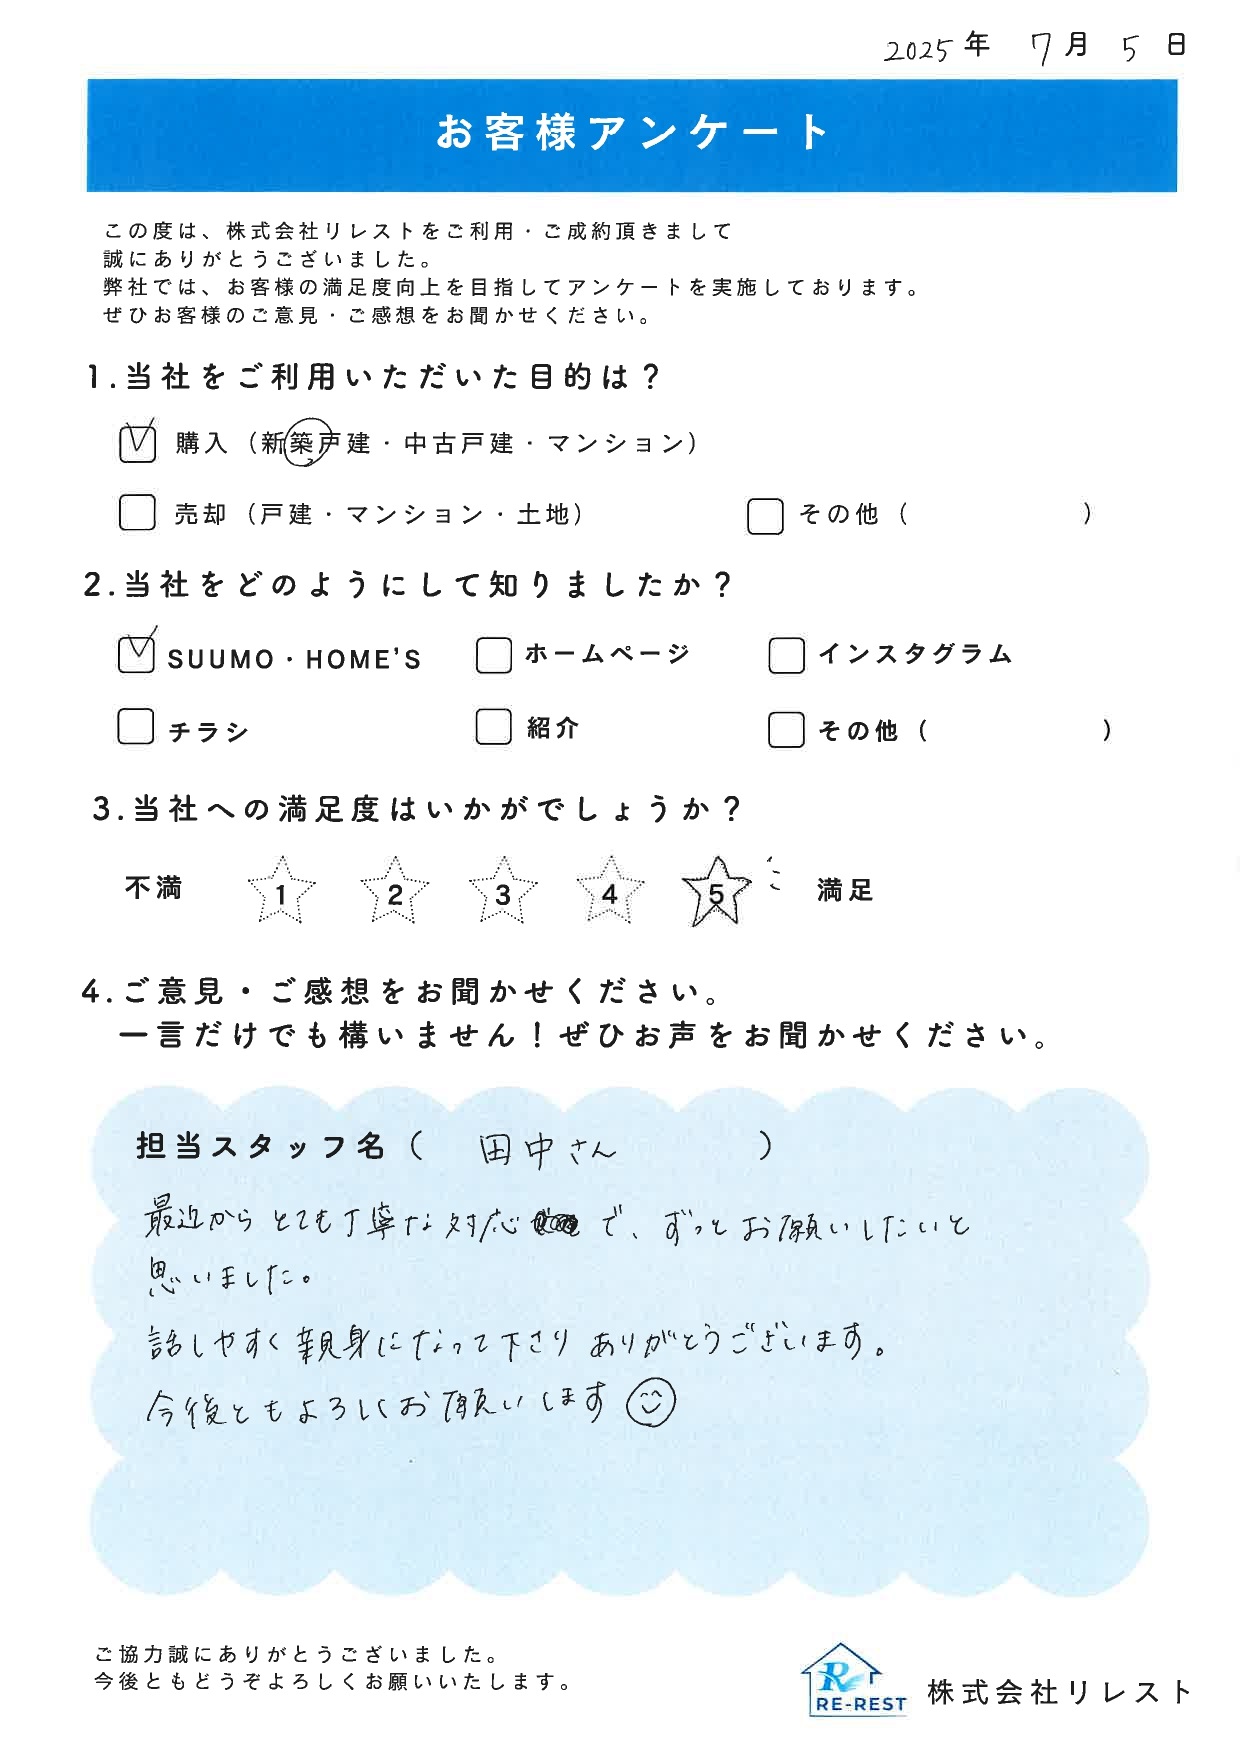 2025年 7月 5日
お客様アンケート
この度は、株式会社リレストをご利用・ご成約頂きまして
誠にありがとうございました。
弊社では、お客様の満足度向上を目指してアンケートを実施しております。
ぜひお客様のご意見・ご感想をお聞かせください。
1.当社をご利用いただいた目的は？
購入（新築戸建・中古戸建・マンション）
売却（戸建・マンション・土地） その他（ ）
2.当社をどのようにして知りましたか？
SUUMO・HOME'S ホームページ インスタグラム
チラシ 紹介 その他（ ）
3.当社への満足度はいかがでしょうか？
不満 1 2 3 4 5 満足
4.ご意見・ご感想をお聞かせください。
一言だけでも構いません！ぜひお声をお聞かせください。
担当スタッフ名（ 田中さん ）
最近からとても丁寧な対応で、ずっとお願いしたいと
思いました。
話しやすく親身になって下さりありがとうございます。
今後ともよろしくお願いします
ご協力誠にありがとうございました。
今後ともどうぞよろしくお願いいたします。
R
RE-REST 株式会社リレスト